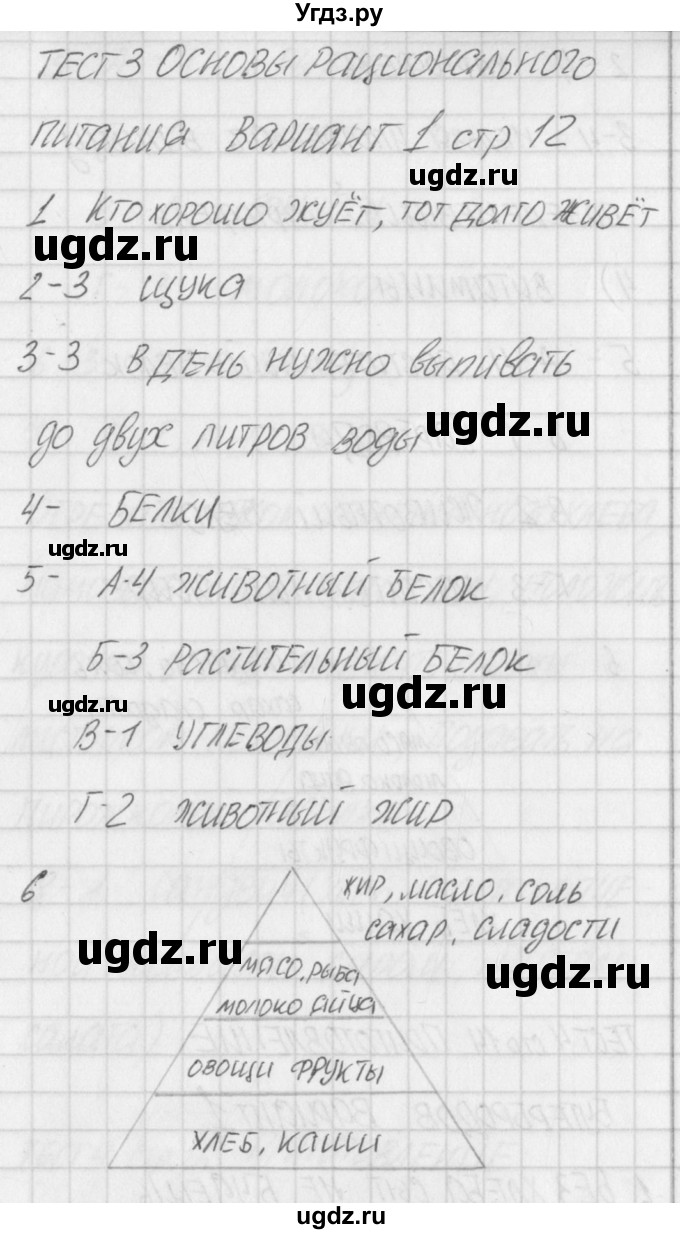 Угдз.ру
ТЕСТ 3 Основы рационального
питания Вариант 1 стр 12
ugdz.ru
1 Кто хорошо жуёт, тот долго живёт
ugdz.ru
2-3 щука
3-3 В день нужно выпивать
до двух литров воды
ugdz.ru
4- БЕЛКИ
ugdz.ru
5- А-4 животный белок
Б-3 растительный белок
ugdz.ru
ugdz.ru
В-1 углеводы
Г-2 животный жир
6
жир, масло, соль
сахар, сладости
ugdz.ru
ugdz.ru
мясо, рыба
молоко яйца
овощи фрукты
хлеб, каши
ugdz.ru